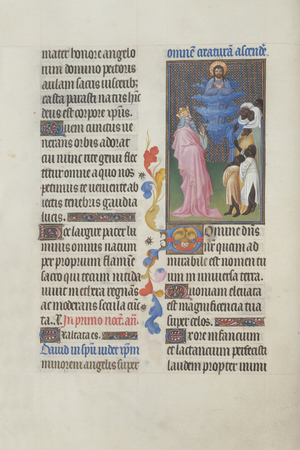 mater honore angelo
rum domino pectoris
aulam sacris visceribus
casta parasti natus hic
deus est corpore xp̄us.
Quem cunctus ve
nerans orbis ador
at cui nunc rite genu flec
titur omne a quo nos
petimus te veniente ab
iectis tenebris gaudia
lucis.
Hec largire pater lu
minis omnis natum
per proprium flamine
sacro qui tecum nitida
nunc in ethera regnas
ac moderaris secula cūc
ta. R. In primo noct. an.
Exaltata es.
David in spū videt xp̄m
minorem angelis super
omnē creaturā ascende.
Domine dn̄s
nr̄ quam ad
mirabile est nomen tu
um in universa terra.
Quoniam elevata
est magnificētia tua
super celos.
Ex ore infancium
et lactancium perfecisti
laudem propter inimi